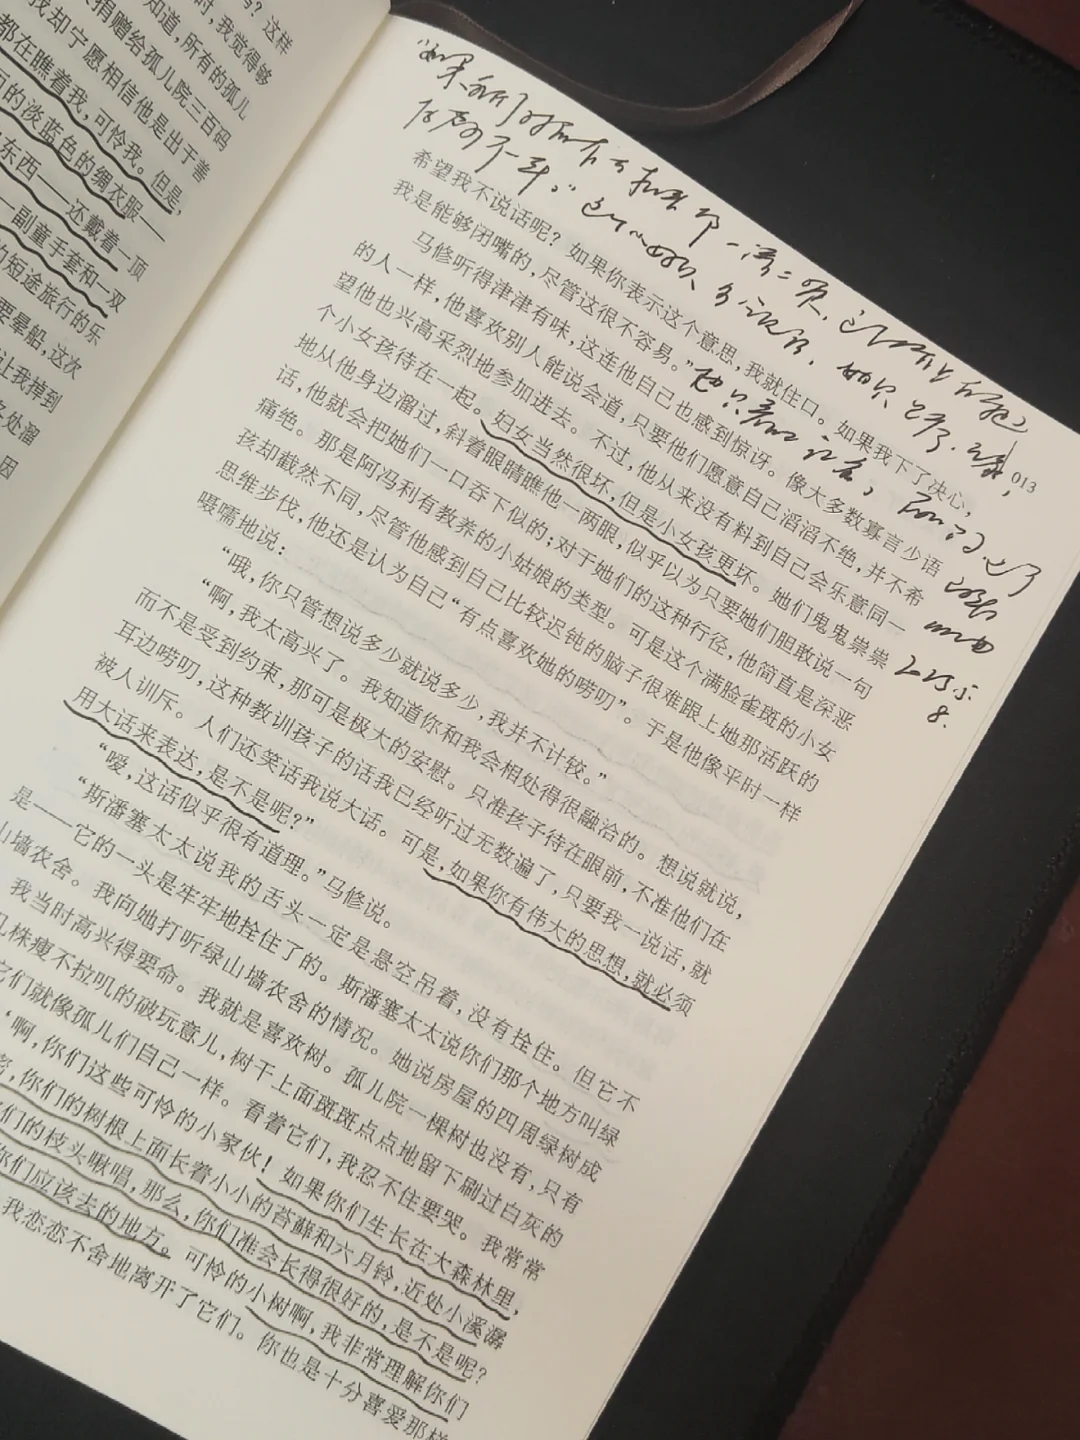 ？这样
时，我觉得够
知道，所有的孤儿
捐赠给孤儿院三百码
我却宁愿相信他是出于善
都在瞧着我，可怜我。但是，
的淡蓝色的绸衣服——
东西——还戴着一顶
一副童手套和一双
的短途旅行的乐
要晕船，这次
让我掉到
处溜
因
希望我不说话呢？如果你表示这个意思，我就住口。如果我下了决心，
我是能够闭嘴的，尽管这很不容易。”
马修听得津津有味，这连他自己也感到惊讶。像大多数寡言少语
的人一样，他喜欢别人能说会道，只要他们愿意自己滔滔不绝，并不希
望他也兴高采烈地参加进去。不过，他从来没有料到自己会乐意同一
个小女孩待在一起。妇女当然很坏，但是小女孩更坏。她们鬼鬼祟祟
地从他身边溜过，斜着眼睛瞧他一两眼，似乎以为只要她们胆敢说一句
话，他就会把她们一口吞下似的；对于她们的这种行径，他简直是深恶
痛绝。那是阿冯利有教养的小姑娘的类型。可是这个满脸雀斑的小女
孩却截然不同，尽管他感到自己比较迟钝的脑子很难跟上她那活跃的
思维步伐，他还是认为自己“有点喜欢她的唠叨”。于是他像平时一样
嗫嚅地说：
“哦，你只管想说多少就说多少，我并不计较。”
“啊，我太高兴了。我知道你和我会相处得很融洽的。想说就说，
而不是受到约束，那可是极大的安慰。只准孩子待在眼前，不准他们在
耳边唠叨，这种教训孩子的话我已经听过无数遍了，只要我一说话，就
被人训斥。人们还笑话我说大话。可是，如果你有伟大的思想，就必须
用大话来表达，是不是呢？”
“嗳，这话似乎很有道理。”马修说。
“斯潘塞太太说我的舌头一定是悬空吊着，没有拴住。但它不
是——它的一头是牢牢地拴住了的。斯潘塞太太说你们那个地方叫绿
山墙农舍。我向她打听绿山墙农舍的情况。她说房屋的四周绿树成
我当时高兴得要命。我就是喜欢树。孤儿院一棵树也没有，只有
几株瘦不拉叽的破玩意儿，树干上面斑斑点点地留下刷过白灰的
它们就像孤儿们自己一样。看着它们，我忍不住要哭。我常常
‘啊，你们这些可怜的小家伙！如果你们生长在大森林里，
，你们的树根上面长着小小的苔藓和六月铃，近处小溪潺
们的枝头啾唱，那么，你们准会长得很好的，是不是呢？
你们应该去的地方。可怜的小树啊，我非常理解你们
我恋恋不舍地离开了它们。你也是十分喜爱那样
013